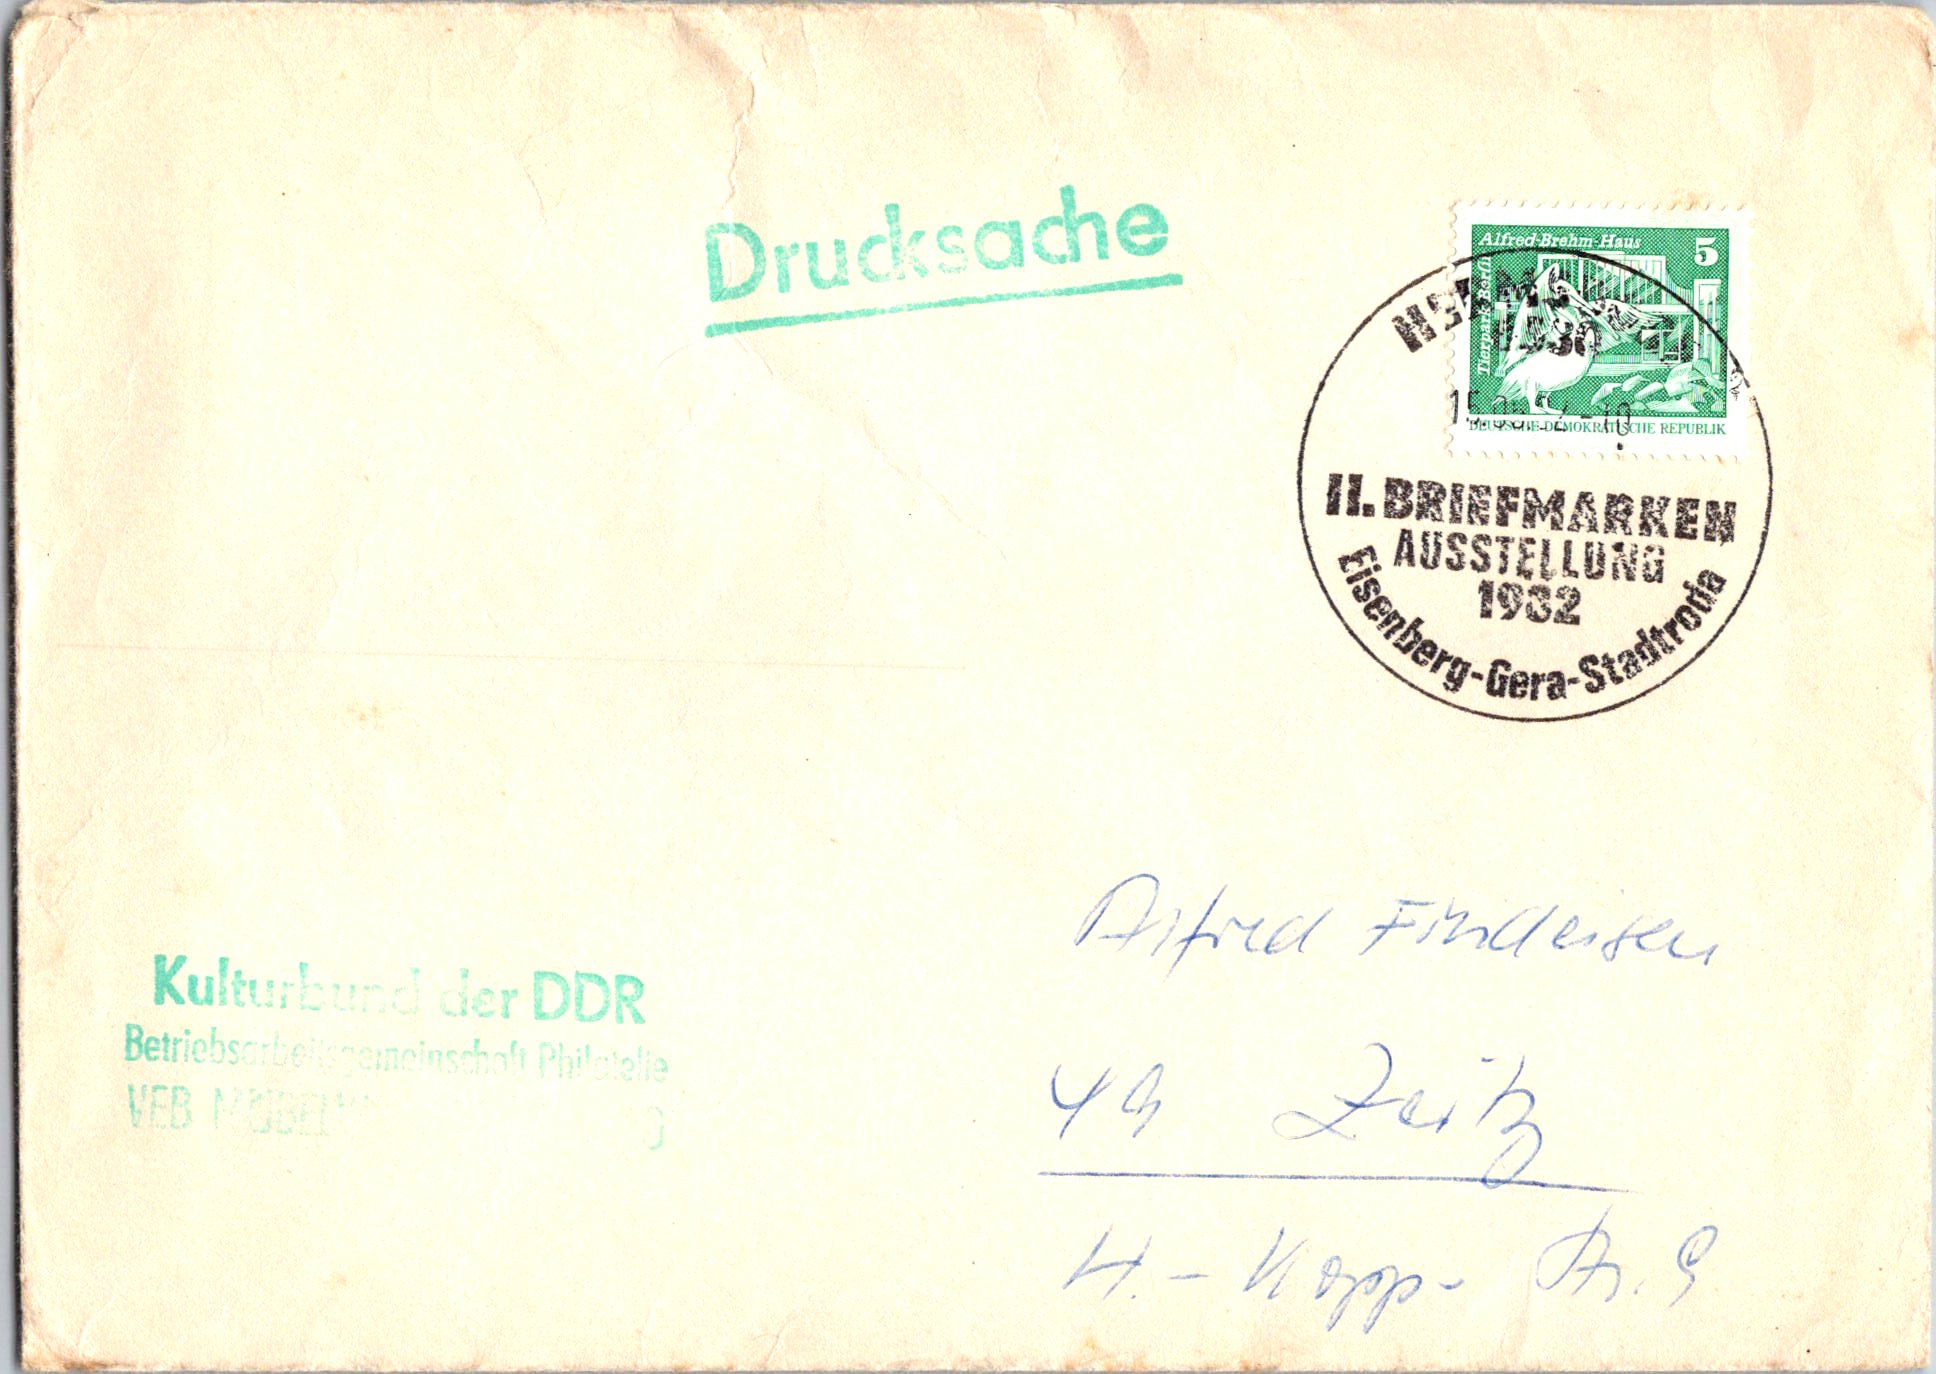 Drucksache
Alfred-Brehm-Haus 5
Tierpark Berlin
DEUTSCHE DEMOKRATISCHE REPUBLIK
II. BRIEFMARKEN
AUSSTELLUNG
1982
Eisenberg-Gera-Stadtroda
Kulturbund der DDR
Betriebsarbeitsgemeinschaft Philatelie
VEB
Alfred Findeisen
49 Zeitz
H.-Kopp-Str. 9